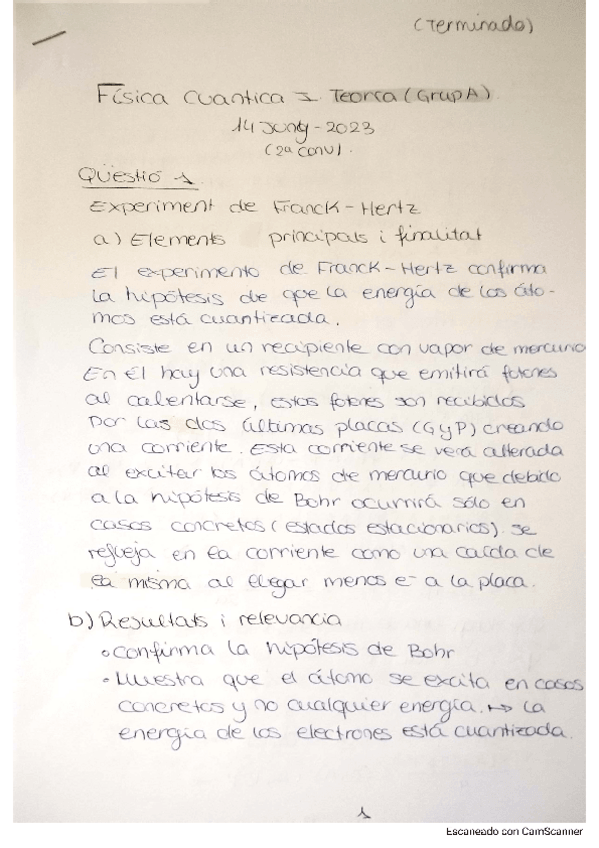 (Terminado)
Física cuantica I Teoría (Grup A)
14 Juny - 2023
(2a conv).
Qüestió 1
Experiment de Franck-Hertz
a) Elements principals i finalitat
El experimento de Franck-Hertz confirma
la hipótesis de que la energía de los áto-
mos está cuantizada.
Consiste en un recipiente con vapor de mercurio
En él hay una resistencia que emitirá fotones
al calentarse, estos fotones son recibidos
por las dos últimas placas (G y P) creando
una corriente. Esta corriente se verá alterada
al excitar los átomos de mercurio que debido
a la hipótesis de Bohr ocurrirá sólo en
casos concretos (estados estacionarios). Se
refleja en la corriente como una caída de
la misma al llegar menos e- a la placa.
b) Resultats i relevancia
• Confirma la hipótesis de Bohr
• Muestra que el átomo se excita en casos
concretos y no cualquier energía. ↦ La
energía de los electrones está cuantizada.
1
Escaneado con CamScanner